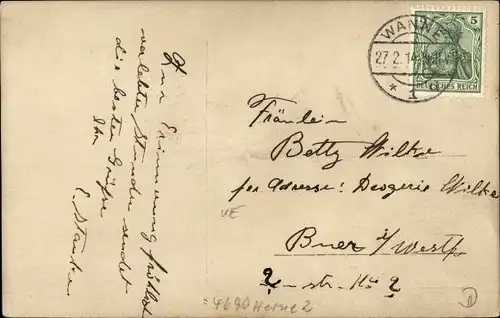 Zur Erinnerung fröhlich
verlebter Stunden sendet
die besten Grüsse
Ihr
E.
WANNE
27.2.14
* 1
5
DEUTSCHES REICH
Fräulein
Betty Wilke
per Adresse: Drogerie Wilke
Buer i/Westf
?-str. No ?
VE
=4690 Herne 2